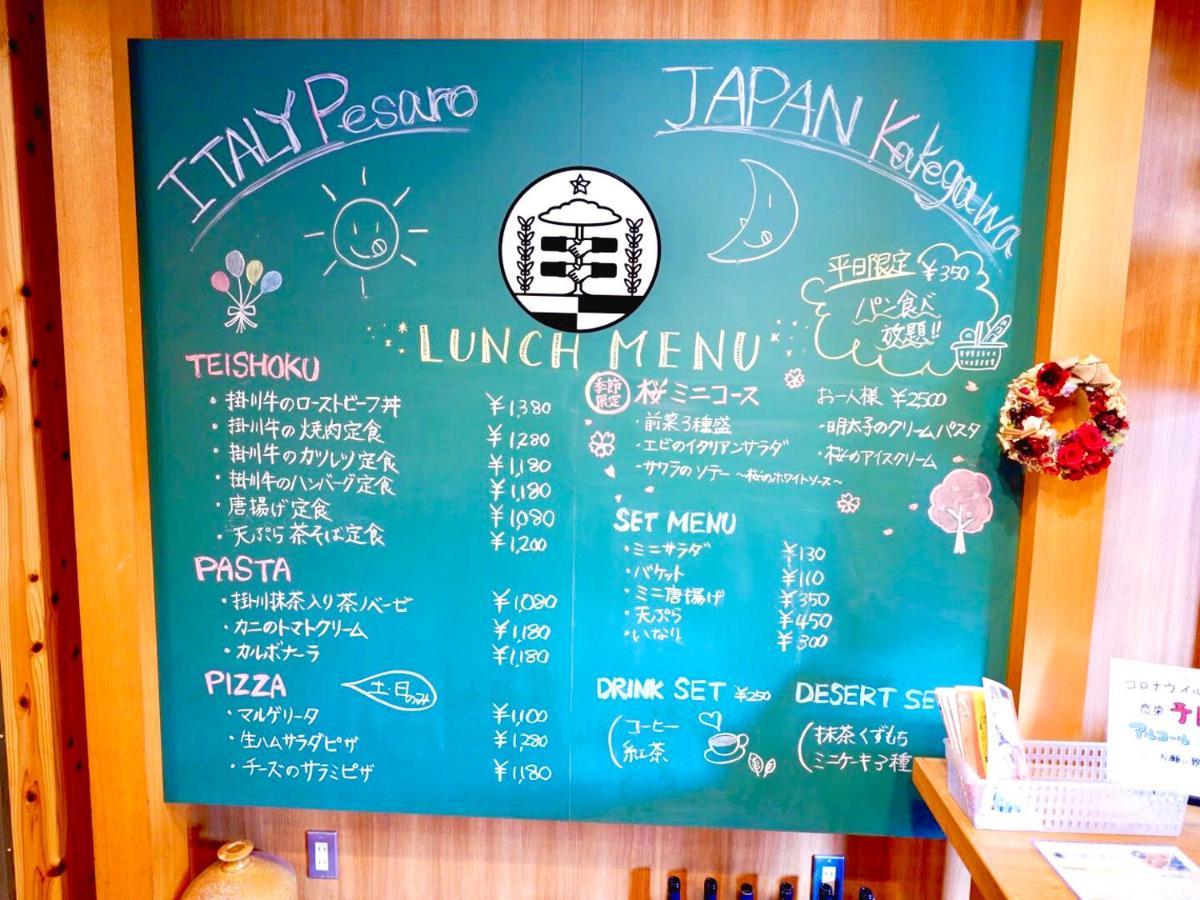 ITALY Pesaro
JAPAN Kakegawa
平日限定 ¥350
パン食べ
放題!!
LUNCH MENU
TEISHOKU
・掛川牛のローストビーフ丼 ¥1,380
・掛川牛の焼肉定食 ¥1,280
・掛川牛のカツレツ定食 ¥1,180
・掛川牛のハンバーグ定食 ¥1,180
・唐揚げ定食 ¥1,080
・天ぷら茶そば定食 ¥1,200
PASTA
・掛川抹茶入り茶ノベーゼ ¥1,080
・カニのトマトクリーム ¥1,180
・カルボナーラ ¥1,180
PIZZA 土・日のみ
・マルゲリータ ¥1,100
・生ハムサラダピザ ¥1,280
・チーズのサラミピザ ¥1,180
季節限定 桜ミニコース お一人様 ¥2500
・前菜3種盛
・エビのイタリアンサラダ
・サワラのソテー ～桜のホワイトソース～
・明太子のクリームパスタ
・桜のアイスクリーム
SET MENU
・ミニサラダ ¥130
・バケット ¥110
・ミニ唐揚げ ¥350
・天ぷら ¥450
・いなり ¥300
DRINK SET ¥250
コーヒー
紅茶
DESERT SE
抹茶くずもち
ミニケーキ3種
コロナウイル
感染
アルコール